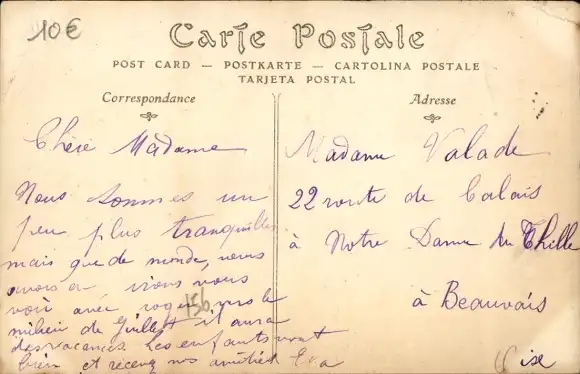 10€
Carte Postale
POST CARD — POSTKARTE — CARTOLINA POSTALE
TARJETA POSTAL
Correspondance
Adresse
Chère Madame
Nous sommes un
peu plus tranquilles
mais que de monde, nous
irons vous
voir avec roger vers le
milieu de juillet il aura
des vacances. Les enfants vont
bien et recevez nos amitiés Eva
156
Madame Valade
22 route de Calais
à Notre Dame du Thille
à Beauvais
Oise